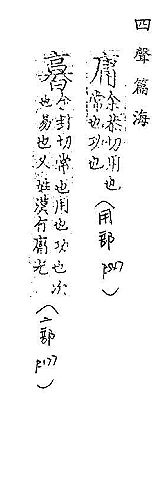 四聲篇海
庸余恭切用也
常也功也(用部
余封切常也用也功也次
也易也又姓漢有庸光(亠部 p177)